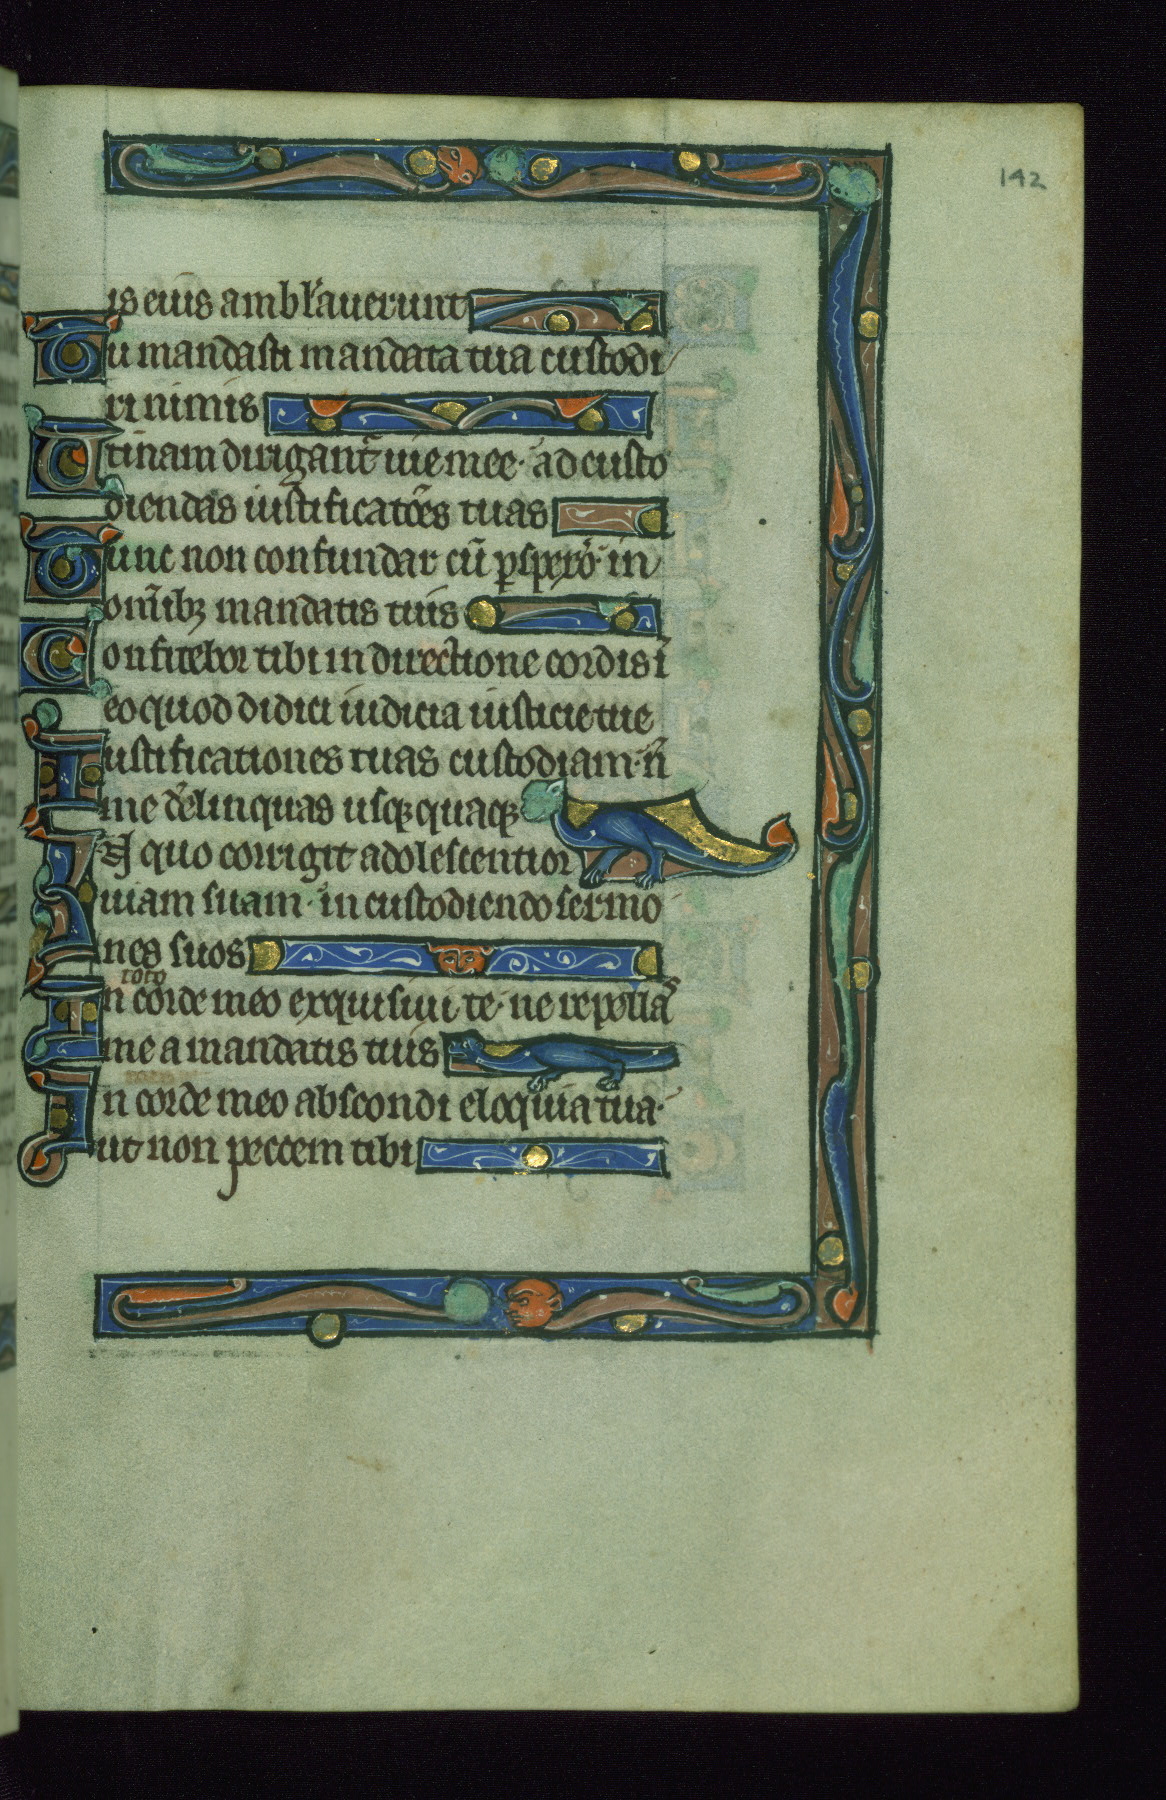 142
is eius ambl'auerunt
Tu mandasti mandata tua custodi
ri nimis
Utinam dirigant̄ uie mee· ad custo
diendas iustificatōes tuas
Tunc non confundar cū ꝑspexo· in
om̄ibꝫ mandatis tuis
Confitebor tibi in directione cordis ī
eo quod didici iudicia iusticie tue
Iustificationes tuas custodiam· n̄
me derelinquas usqꝫquaqꝫ
In quo corrigit adolescentior
uiam suam· in custodiendo sermo
nes suos
toto
In corde meo exquisiui te· ne repellas
me a mandatis tuis
In corde meo abscondi eloquia tua·
ut non peccem tibi